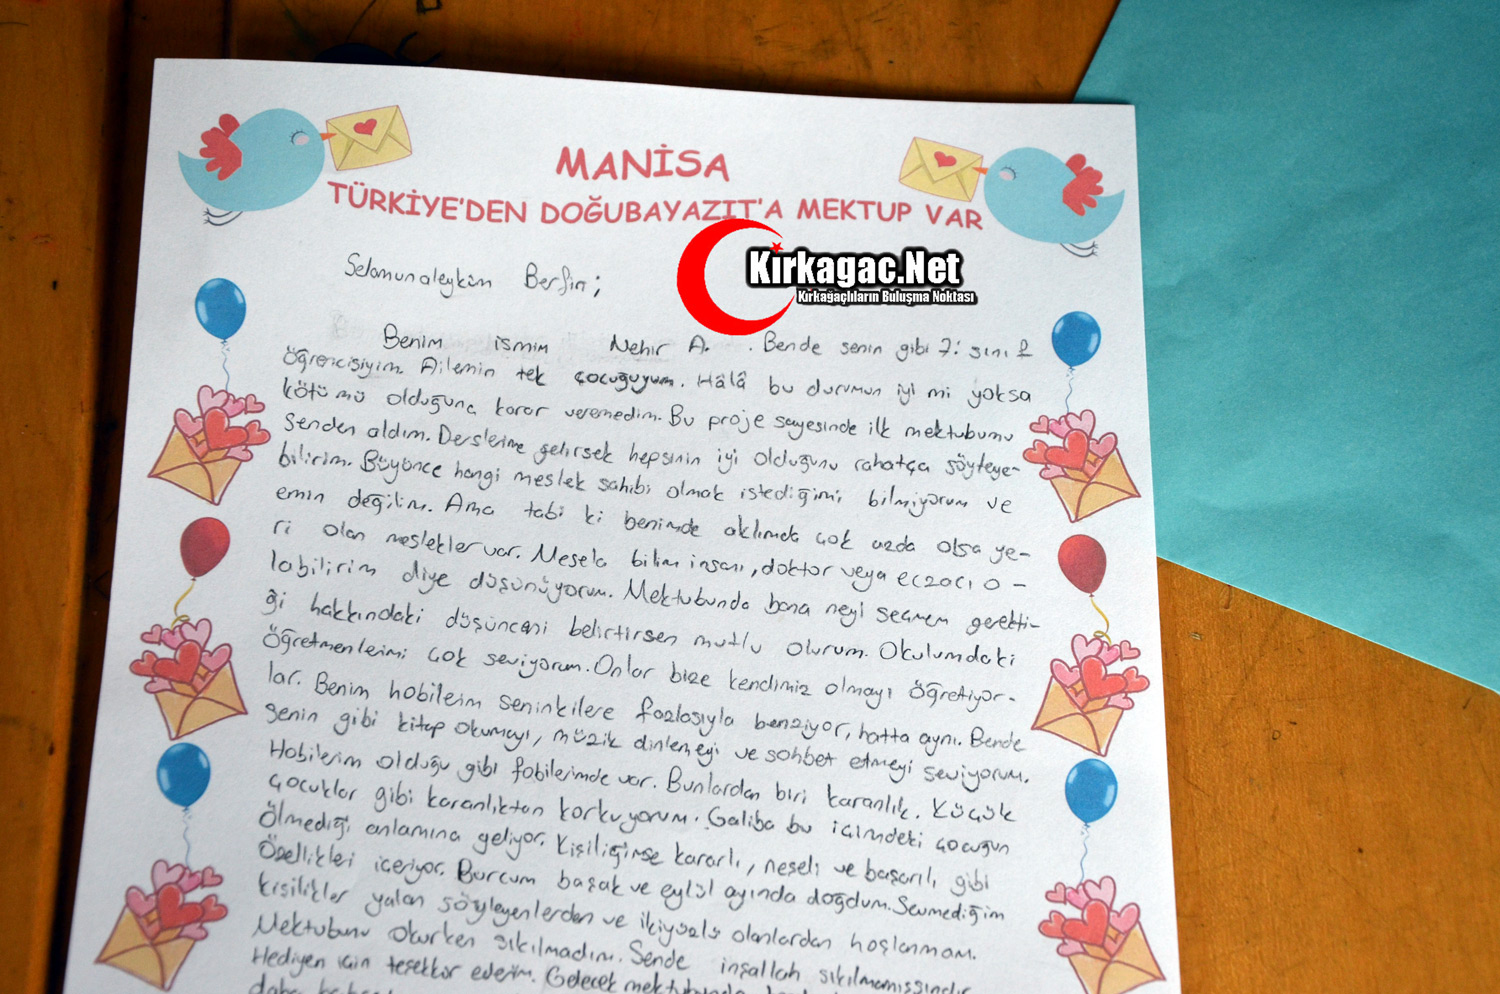 MANİSA
TÜRKİYE'DEN DOĞUBAYAZIT'A MEKTUP VAR
Kırkagac.Net
Kırkağaçlıların Buluşma Noktası
Selamunaleyküm Berfin;
Benim ismim Nehir A. . Bende senin gibi 7. sınıf
öğrencisiyim. Ailemin tek çocuğuyum. Hâlâ bu durumun iyi mi yoksa
kötü mü olduğuna karar veremedim. Bu proje sayesinde ilk mektubumu
senden aldım. Derslerime gelirsek hepsinin iyi olduğunu rahatça söyleye-
bilirim. Büyünce hangi meslek sahibi olmak istediğimi bilmiyorum ve
emin değilim. Ama tabi ki benimde aklımda çok azda olsa ye-
ri olan meslekler var. Mesela bilim insanı, doktor veya eczacı o-
labilirim diye düşünüyorum. Mektubunda bana neyi seçmem gerekti-
ği hakkındaki düşünceni belirtirsen mutlu olurum. Okulumdaki
öğretmenlerimi çok seviyorum. Onlar bize kendimiz olmayı öğretiyor-
lar. Benim hobilerim seninkilere fazlasıyla benziyor, hatta aynı. Bende
senin gibi kitap okumayı, müzik dinlemeyi ve sohbet etmeyi seviyorum.
Hobilerim olduğu gibi fobilerimde var. Bunlardan biri karanlık. Küçük
çocuklar gibi karanlıktan korkuyorum. Galiba bu içimdeki çocuğun
ölmediği anlamına geliyor. Kişiliğimse kararlı, neşeli ve başarılı gibi
özellikleri içeriyor. Burcum başak ve eylül ayında doğdum. Sevmediğim
kişilikler yalan söyleyenlerden ve ikiyüzlü olanlardan hoşlanmam.
Mektubunu okurken sıkılmadım. Sende inşallah sıkılmamışsındır.
Hediyen için teşekkür ederim. Gelecek mektubunda
daha